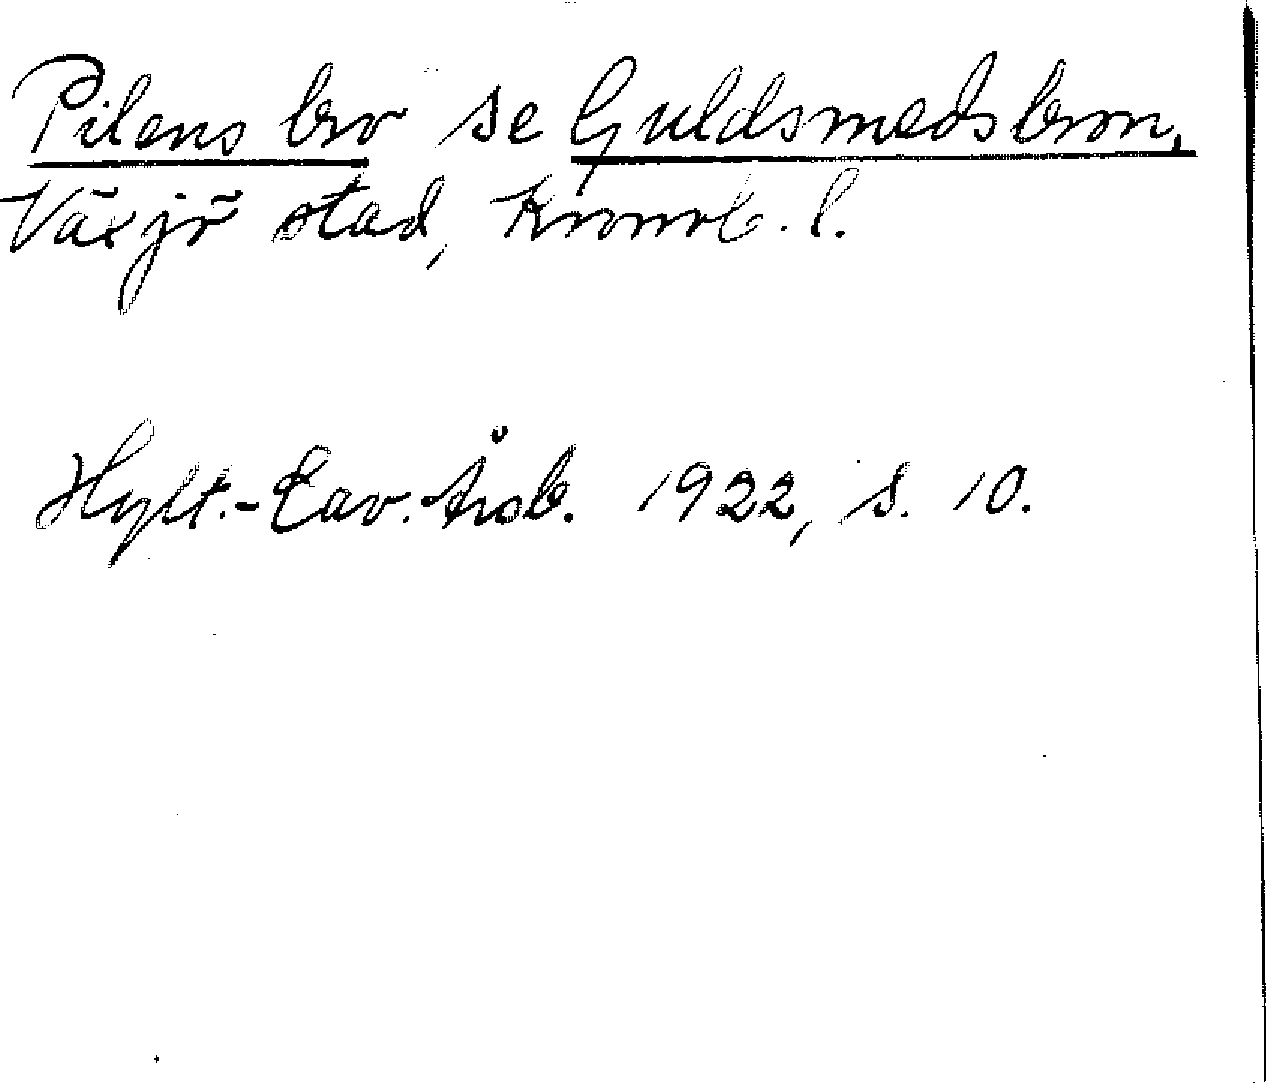 Pilens bro se Guldsmedsbron,
Växjö stad, Kronob. l.
Hylt.-Cav. Årsb. 1922, s. 10.